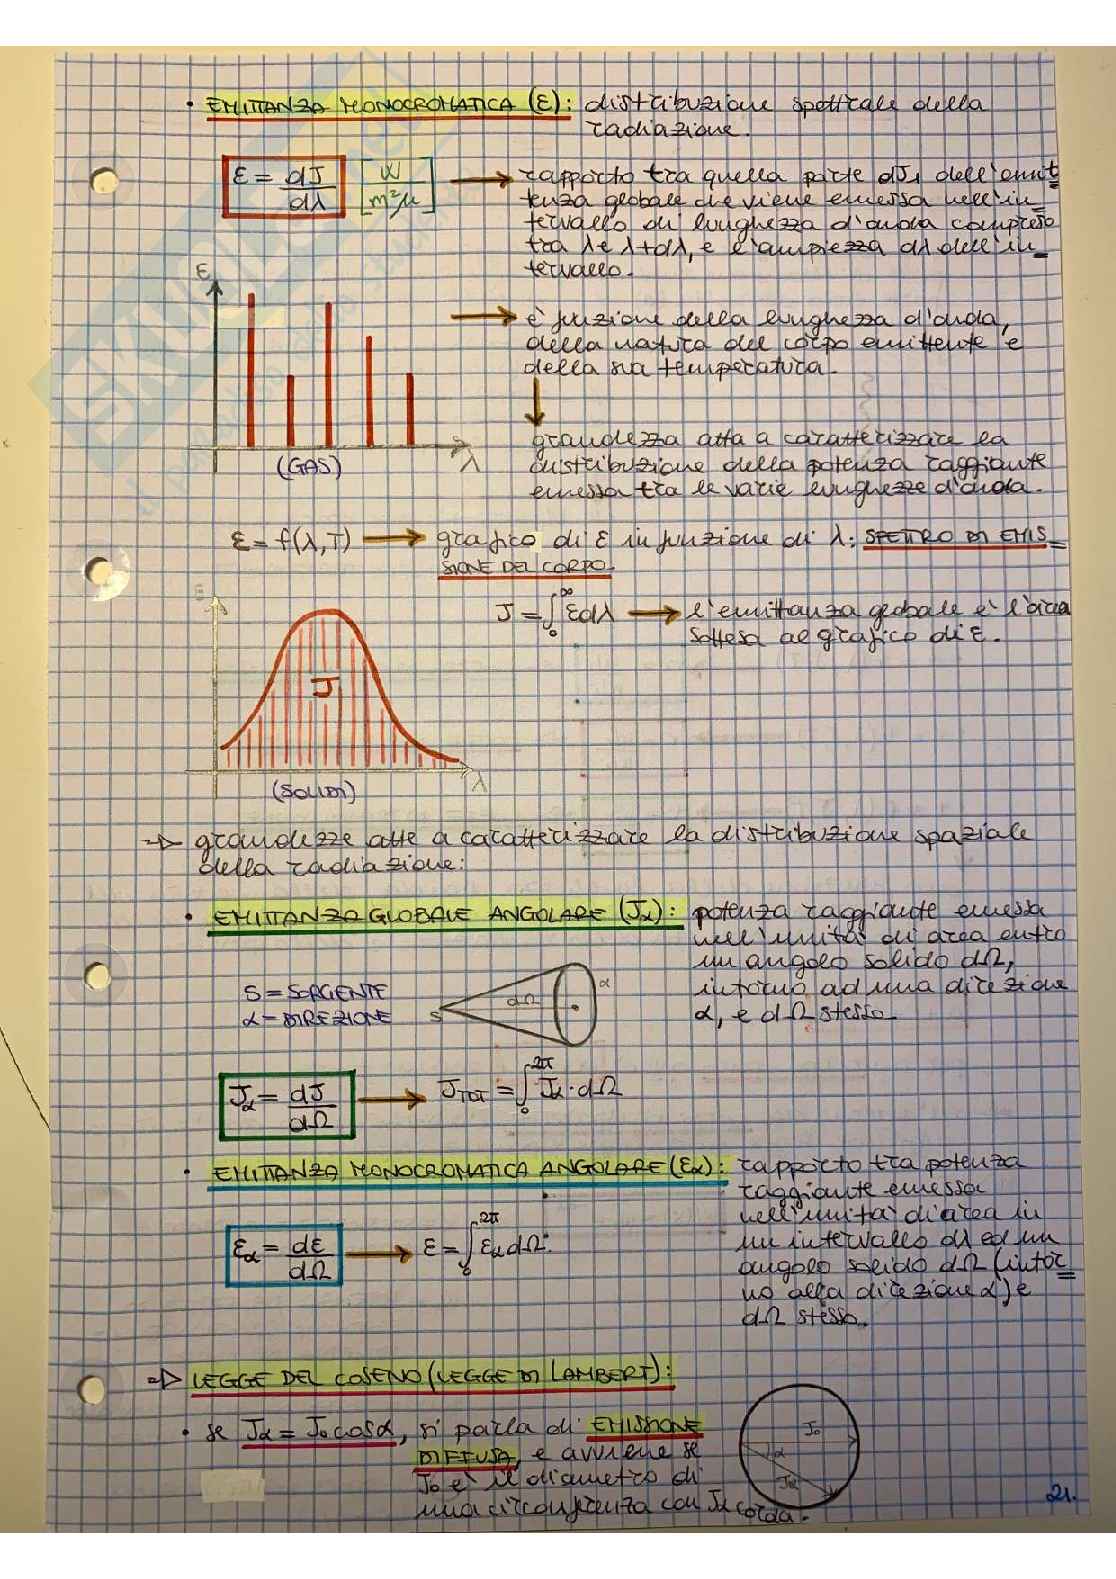 • EMITTANZA MONOCROMATICA (ε): distribuzione spettrale della
radiazione.
ε = dJ/dλ [W/m²μ] → rapporto tra quella parte dJλ dell'emit=
tenza globale che viene emessa nell'in=
tervallo di lunghezza d'onda compreso
tra λ e λ+dλ, e l'ampiezza dλ dell'in=
tervallo.
ε
→ è funzione della lunghezza d'onda,
della natura del corpo emittente e
della sua temperatura.
grandezza atta a caratterizzare la
distribuzione della potenza raggiante
emessa tra le varie lunghezze d'onda.
(GAS) λ
ε = f(λ,T) → grafico di ε in funzione di λ: SPETTRO DI EMIS=
SIONE DEL CORPO.
ε
J = ∫₀^∞ εdλ → l'emittanza globale è l'area
sottesa al grafico di ε.
J
(SOLIDI) λ
⇒ grandezze atte a caratterizzare la distribuzione spaziale
della radiazione:
• EMITTANZA GLOBALE ANGOLARE (Jα): potenza raggiante emessa
nell'unità di area entro
un angolo solido dΩ,
intorno ad una direzione
α, e dΩ stesso.
S = SORGENTE
α = DIREZIONE
S dΩ α
Jα = dJ/dΩ → JTOT = ∫₀^2π Jα · dΩ
• EMITTANZA MONOCROMATICA ANGOLARE (εα): rapporto tra potenza
raggiante emessa
nell'unità di area in
un intervallo dλ ed un
angolo solido dΩ (intor=
no alla direzione α) e
dΩ stesso.
εα = dε/dΩ → ε = ∫₀^2π εα dΩ.
⇒ LEGGE DEL COSENO (LEGGE DI LAMBERT):
• se Jα = J₀ cosα, si parla di EMISSIONE
DIFFUSA, e avviene se
J₀ è il diametro di
una circonferenza con Jα corda.
J₀
α
Jα
21.